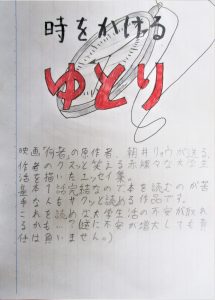 時をかける
ゆとり
映画「何者」の原作者、朝井リョウが送る、
作者のクスッと笑える赤裸々な大学生
活を描いたエッセイ集。
基本1話完結なので本を読むのが苦
手な人もサクッと読める作品です。
これを読めば大学生活の不安が取れ
るかも…?(逆に不安が増大しても責
任は負いません。)